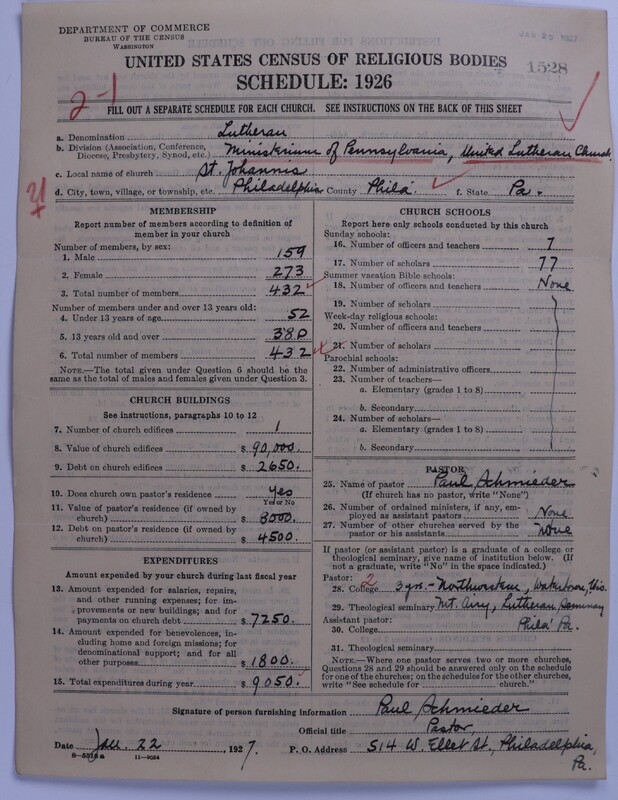 DEPARTMENT OF COMMERCE
BUREAU OF THE CENSUS
WASHINGTON
JAN 25 1927
UNITED STATES CENSUS OF RELIGIOUS BODIES
1528
SCHEDULE: 1926
2-1
FILL OUT A SEPARATE SCHEDULE FOR EACH CHURCH. SEE INSTRUCTIONS ON THE BACK OF THIS SHEET
a. Denomination Lutheran
b. Division (Association, Conference, Diocese, Presbytery, Synod, etc.) Ministerium of Pennsylvania, United Lutheran Church.
c. Local name of church St. Johannis
d. City, town, village, or township, etc. Philadelphia County Phila. f. State Pa.
MEMBERSHIP
Report number of members according to definition of
member in your church
Number of members, by sex:
1. Male 159
2. Female 273
3. Total number of members 432
Number of members under and over 13 years old:
4. Under 13 years of age 52
5. 13 years old and over 380
6. Total number of members 432
NOTE.—The total given under Question 6 should be
same as the total of males and females given under Question 3.
CHURCH BUILDINGS
See instructions, paragraphs 10 to 12
7. Number of church edifices 1
8. Value of church edifices $ 90,000.
9. Debt on church edifices $ 2650.
10. Does church own pastor's residence Yes
Yes or No
11. Value of pastor's residence (if owned by
church) $ 8000.
12. Debt on pastor's residence (if owned by
church) $ 4500.
EXPENDITURES
Amount expended by your church during last fiscal year
13. Amount expended for salaries, repairs,
and other running expenses; for im-
provements or new buildings; and for
payments on church debt $ 7250.
14. Amount expended for benevolences, in-
cluding home and foreign missions; for
denominational support; and for all
other purposes $ 1800.
15. Total expenditures during year $ 9050.
CHURCH SCHOOLS
Report here only schools conducted by this church
Sunday schools:
16. Number of officers and teachers 7
17. Number of scholars 77
Summer vacation Bible schools:
18. Number of officers and teachers None
19. Number of scholars
Week-day religious schools:
20. Number of officers and teachers
21. Number of scholars
Parochial schools:
22. Number of administrative officers
23. Number of teachers—
a. Elementary (grades 1 to 8)
b. Secondary
24. Number of scholars—
a. Elementary (grades 1 to 8)
b. Secondary
PASTOR
25. Name of pastor Paul Schmieder
(If church has no pastor, write "None")
26. Number of ordained ministers, if any, em-
ployed as assistant pastors None
27. Number of other churches served by the
pastor or his assistants None
If pastor (or assistant pastor) is a graduate of a college or
theological seminary, give name of institution below. (If
not a graduate, write "No" in the space indicated.)
Pastor: 2
28. College 3 yrs. - Northwestern, Watertown, Wis.
29. Theological seminary Mt. Airy, Lutheran Seminary
Assistant pastor: Phila' Pa.
30. College
31. Theological seminary
NOTE.—Where one pastor serves two or more churches,
Questions 28 and 29 should be answered only on the schedule
for one of the churches; on the schedules for the other churches,
write "See schedule for church."
Signature of person furnishing information Paul Schmieder
Official title Pastor,
Date Jan. 22 1927. P. O. Address 514 W. Ellet St., Philadelphia,
Pa.
8-5316 a 11-9024